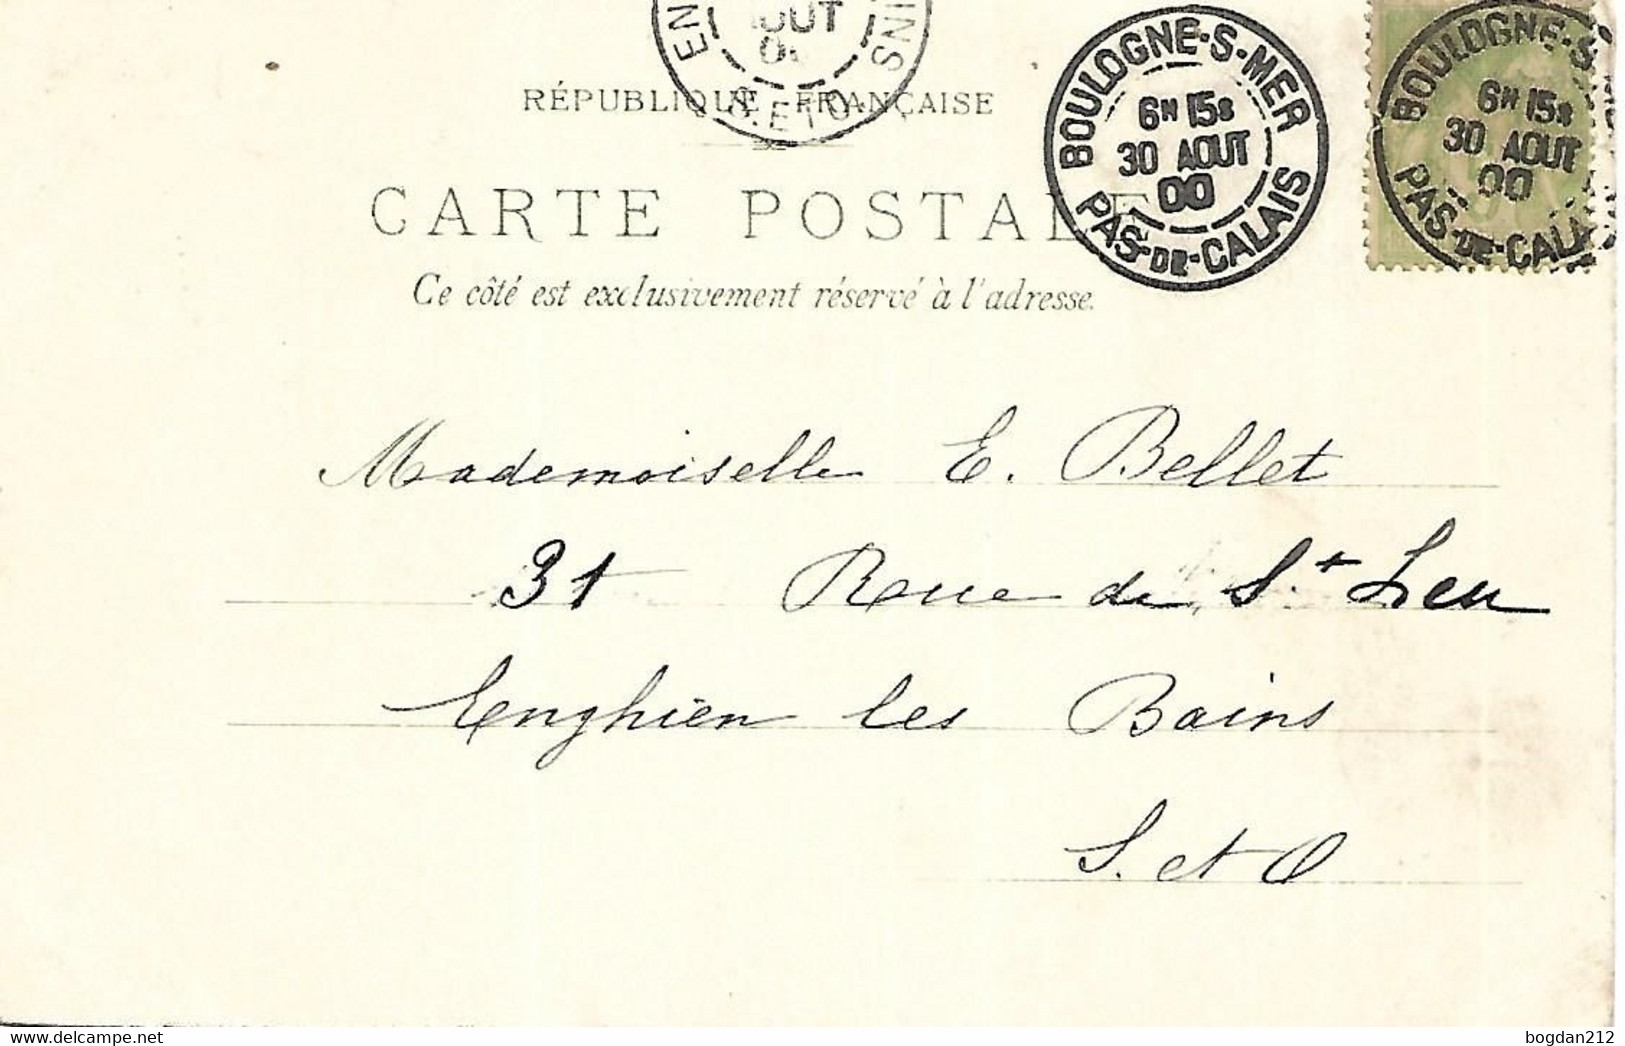 EN
AOUT
INS
S. ET O.
RÉPUBLIQUE FRANÇAISE
CARTE POSTALE
Ce côté est exclusivement réservé à l'adresse.
BOULOGNE-S-MER
6H 15S
30 AOUT
00
PAS-DE-CALAIS
BOULOGNE-S-
6H 15S
30 AOUT
00
PAS-DE-CALA
Mademoiselle E. Bellet
31 Rue de St Leu
Enghien les Bains
S. et O
bogdan212